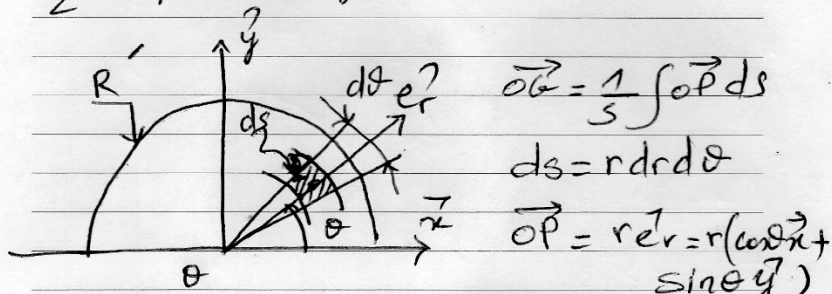 y⃗
R
dθ e⃗r
ds
θ
x⃗
θ
O⃗G = 1/S ∫ O⃗P ds
ds = r dr dθ
O⃗P = r e⃗r = r(cosθ x⃗ +
sinθ y⃗)